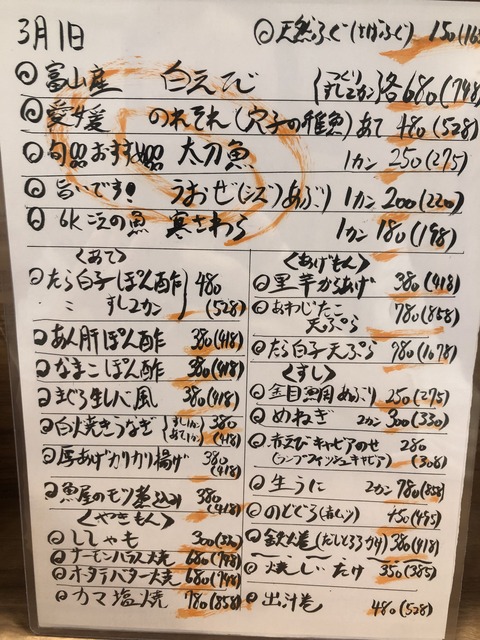 3月1日
◎天然ふぐ(さばふぐ) 150(165
◎富山産 白えび {つくり すし2カン}各680(748)
◎愛媛 のれそれ(穴子の稚魚)あて 480(528)
◎旬品おすすめ品 太刀魚 1カン 250(275)
◎旨いです! うおぜ(シズ)あぶり 1カン 200(220)
◎6kこえの魚 寒さわら 1カン 180(198)
<あて>
◎たら白子ぽん酢 480
〃 すし2カン (528)
◎あん肝ぽん酢 380(418)
◎なまこぽん酢 380(418)
◎まぐろ生レバ風 380(418)
◎白焼きうなぎ 380(418)
◎厚あげカリカリ揚げ 380(418)
◎魚屋のモツ煮込み 380(418)
<やきもん>
◎ししゃも 300(330)
◎サーモンハラス焼 680(748)
◎ホタテバター焼 680(748)
◎カマ塩焼 780(858)
<あげもん>
◎里芋からあげ 380(418)
◎あわじたこ天ぷら 780(858)
◎たら白子天ぷら 980(1078)
<すし>
◎金目鯛あぶり 250(275)
◎めねぎ 2カン 300(330)
◎赤えびキャビアのせ 280
(ランプフィッシュキャビア) (308)
◎生うに 2カン 780(858)
◎のどぐろ(赤ムツ) 450(495)
◎鉄火巻(だしとろろかけ) 380(418)
◎焼しいたけ 350(385)
◎出汁巻 480(528)